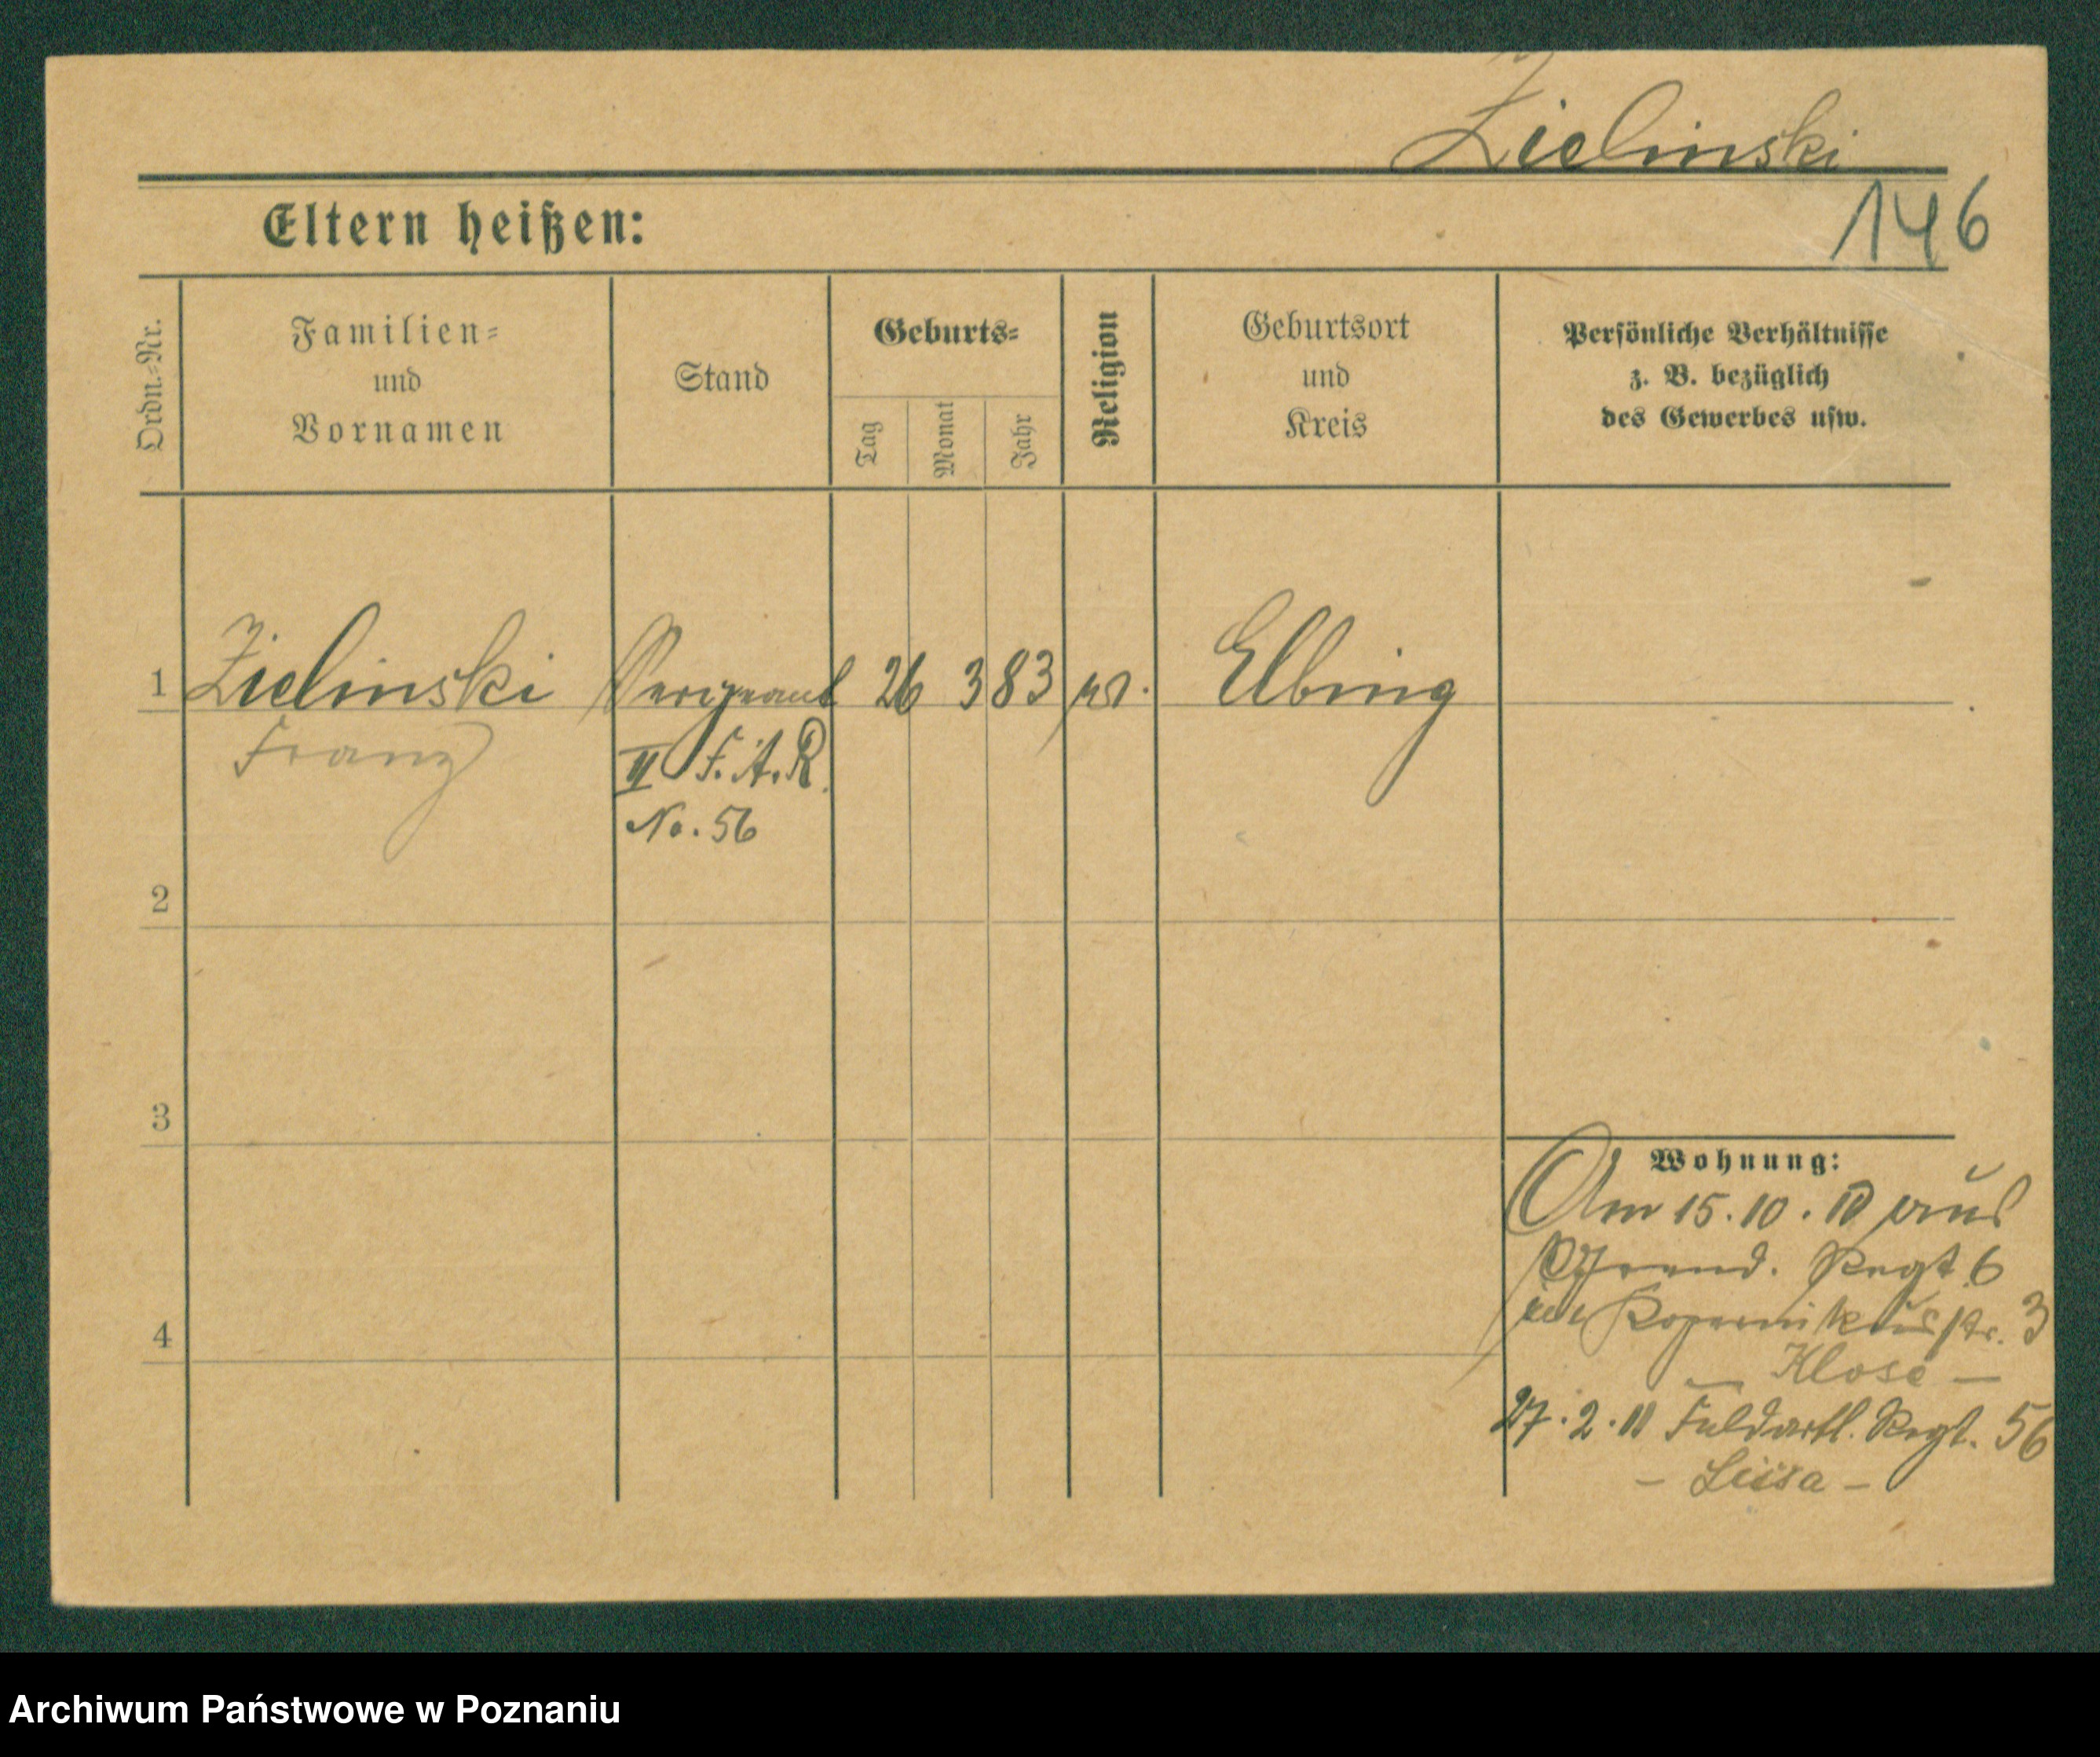 Zielinski
146
Eltern heißen:
Ordn.=Nr.
Familien=
und
Vornamen
Stand
Geburts=
Tag
Monat
Jahr
Religion
Geburtsort
und
Kreis
Persönliche Verhältnisse
z. B. bezüglich
des Gewerbes usw.
1 Zielinski Sergeant 26 3 83 Elbing
Franz II F.A.R.
No. 56
2
3
4
Wohnung:
Am 15.10.10 aus
Grend. Regt 6
Kopernikusstr. 3
— Klose —
27.2.11 Feldartl. Regt. 56
- Lissa -
Archiwum Państwowe w Poznaniu